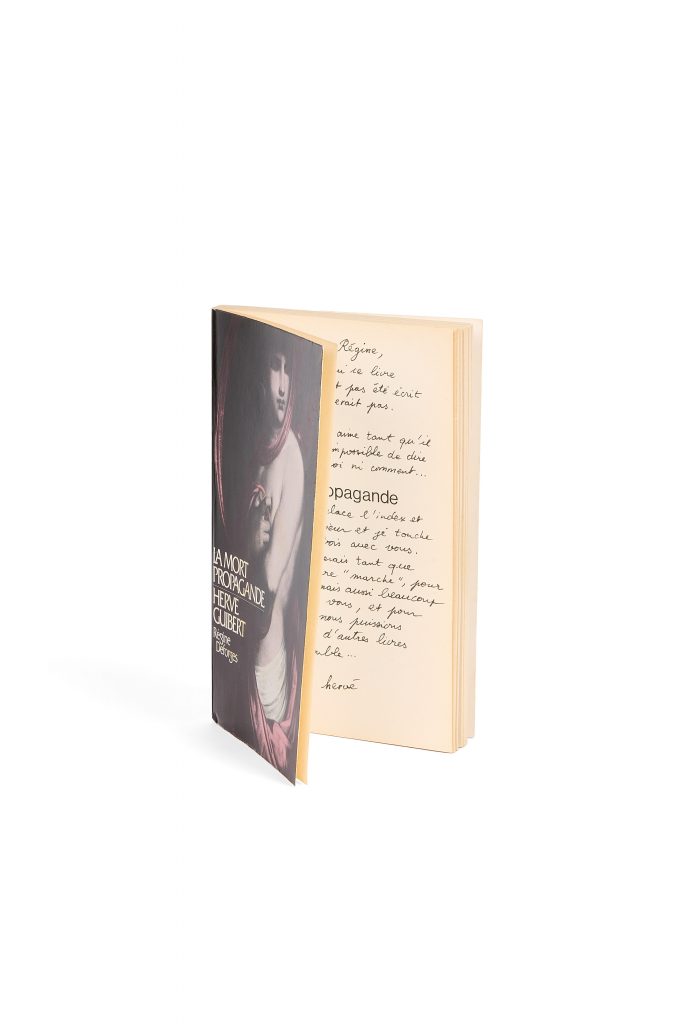 LA MORT
PROPAGANDE
HERVÉ
GUIBERT
Régine
Deforges
Régine,
ce livre
pas été écrit
erait pas.
aime tant qu'il
impossible de dire
oi ni comment...
opagande
place l'index et
eur et je touche
ois avec vous.
erais tant que
re "marche", pour
mais aussi beaucoup
vous, et pour
nous puissions
d'autres livres
mble...
hervé